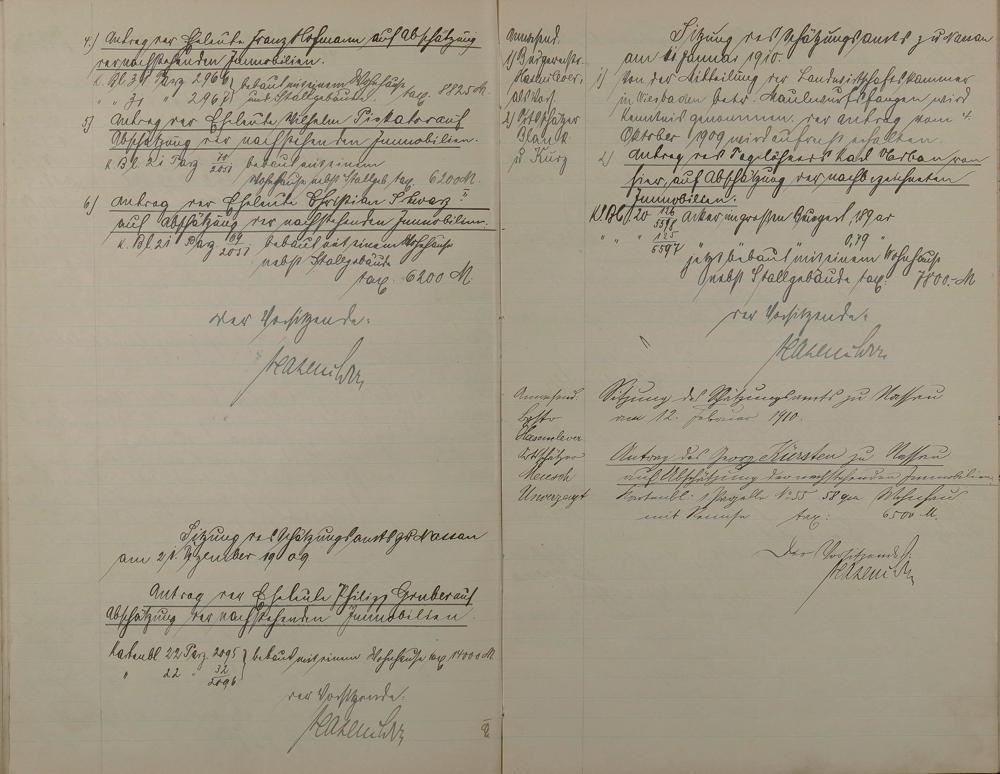 4.) Antrag der Eheleute Franz Hofmann auf Abschätzung
der nachstehenden Immobilien.
K. Bl. 31 Parz 2966 bebaut mit einem Wohnhause
" " 31 " 2967 und Stallgebäude. tax. 8825 M.
5) Antrag der Eheleute Wilhelm Piskator auf
Abschätzung der nachstehenden Immobilien.
K. Bl. 21 Parz 2051 bebaut mit einem
Wohnhause nebst Stallgeb. tax. 6200 M.
6) Antrag der Eheleute Christian
auf Abschätzung der nachstehenden Immobilien.
K. Bl. 21 Parz 2051 bebaut mit einem Wohnhause
nebst Stallgebäude
tax. 6200 M
Der Vorsitzende:
Sitzung des Schätzungsamts zu Nassau
am 21 Dezember 1909
Antrag der Eheleute Philipp Gruber auf
Abschätzung der nachstehenden Immobilien.
Kartenbl 22 Parz. 2095 bebaut mit einem Wohnhause tax 14000 M.
" 22 " 32/2096
der Vorsitzende:
Anwesend.
1) Bürgermstr.
Hasenclever,
als Vors.
2) Ortsschätzer
u Kurz
Sitzung des Schätzungsamts zu Nassau
am Januar 1910.
1) Von der Mitteilung der Landwirthschaftskammer
in Wiesbaden betr. Maulwurfsfangen wird
Kenntnis genommen. der Antrag vom 4.
Oktober 1909 wird aufrecht erhalten.
2) Antrag des Tagelöhners Karl von
hier, auf Abschätzung der nachbezeichneten
Immobilien.
K Bl. 20 126/5596 Acker im grossen 1,89 ar
" " " 125/5597 0,79 "
jetzt bebaut mit einem Wohnhause
nebst Stallgebäude tax: 7800.- M
der Vorsitzende:
Anwesend.
Hasenclever
Ortsschätzer
Unverzagt
Sitzung des Schätzungsamts zu Nassau
am 12. Februar 1910.
Antrag des Georg Kürsten zu Nassau
auf Abschätzung der nachstehenden Immobilien
Kartenbl. 1 Parzelle No 55 58 qm Wohnhaus
mit tax: 6500 M.
Der Vorsitzende: